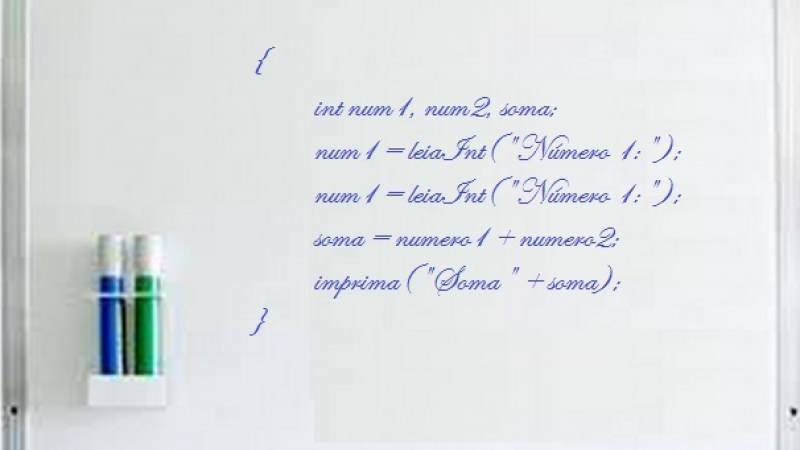 {
int num1, num2, soma;
num1 = leiaInt ("Número 1: ");
num1 = leiaInt ("Número 1: ");
soma = numero1 + numero2;
imprima ("Soma " + soma);
}